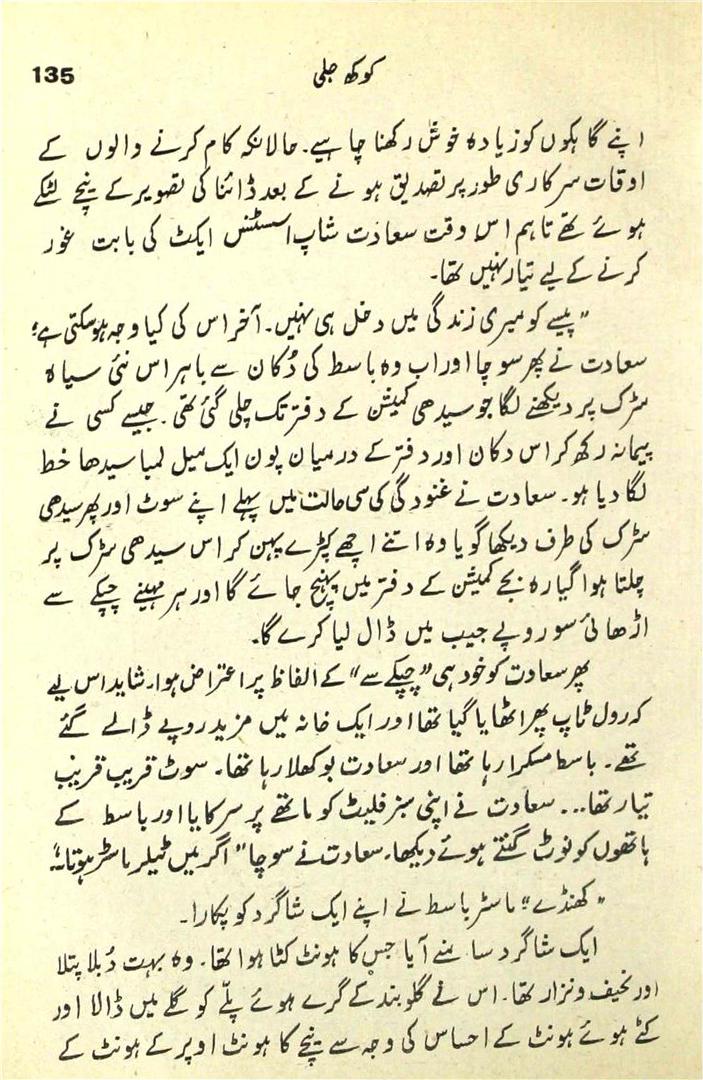 کوکھ جلی 135
اپنے گاہکوں کو زیادہ خوش رکھنا چاہیے۔ حالانکہ کام کرنے والوں کے
اوقات سرکاری طور پر تصدیق ہونے کے بعد ڈائنا کی تصویر کے نیچے لٹکے
ہوئے تھے تاہم اس وقت سعادت شاپ اسسٹنس ایکٹ کی بابت غور
کرنے کے لیے تیار نہیں تھا۔
"پیسے کو میری زندگی میں دخل ہی نہیں۔ آخر اس کی کیا وجہ ہو سکتی ہے؟"
سعادت نے پھر سوچا اور اب وہ باسط کی دُکان سے باہر اس نئی سیاہ
سڑک پر دیکھنے لگا جو سیدھی کمیشن کے دفتر تک چلی گئی تھی۔ جیسے کسی نے
پیمانہ رکھ کر اس دکان اور دفتر کے درمیان پون ایک میل لمبا سیدھا خط
لگا دیا ہو۔ سعادت نے غنودگی کی سی حالت میں پہلے اپنے سوٹ اور پھر سیدھی
سڑک کی طرف دیکھا گویا وہ اتنے اچھے کپڑے پہن کر اس سیدھی سڑک پر
چلتا ہوا گیارہ بجے کمیشن کے دفتر میں پہنچ جائے گا اور ہر مہینے چپکے سے
اڑھائی سو روپے جیب میں ڈال لیا کرے گا۔
پھر سعادت کو خود ہی "چپکے سے" کے الفاظ پر اعتراض ہوا۔ شاید اس لیے
کہ رول ٹاپ پھر اٹھایا گیا تھا اور ایک خانہ میں مزید روپے ڈالے گئے
تھے۔ باسط مسکرا رہا تھا اور سعادت بوکھلا رہا تھا۔ سوٹ قریب قریب
تیار تھا... سعادت نے اپنی سبز فلیٹ کو ماتھے پر سرکایا اور باسط کے
ہاتھوں کو نوٹ گنتے ہوئے دیکھا۔ سعادت نے سوچا "اگر میں ٹیلر ماسٹر ہوتا۔"
"کھنڈے!" ماسٹر باسط نے اپنے ایک شاگرد کو پکارا۔
ایک شاگرد سامنے آیا جس کا ہونٹ کٹا ہوا تھا۔ وہ بہت دُبلا پتلا
اور نحیف ونزار تھا۔ اس نے گلوبند کے گرے ہوئے پلّے کو گلے میں ڈالا اور
کٹے ہوئے ہونٹ کے احساس کی وجہ سے نیچے کا ہونٹ اوپر کے ہونٹ کے